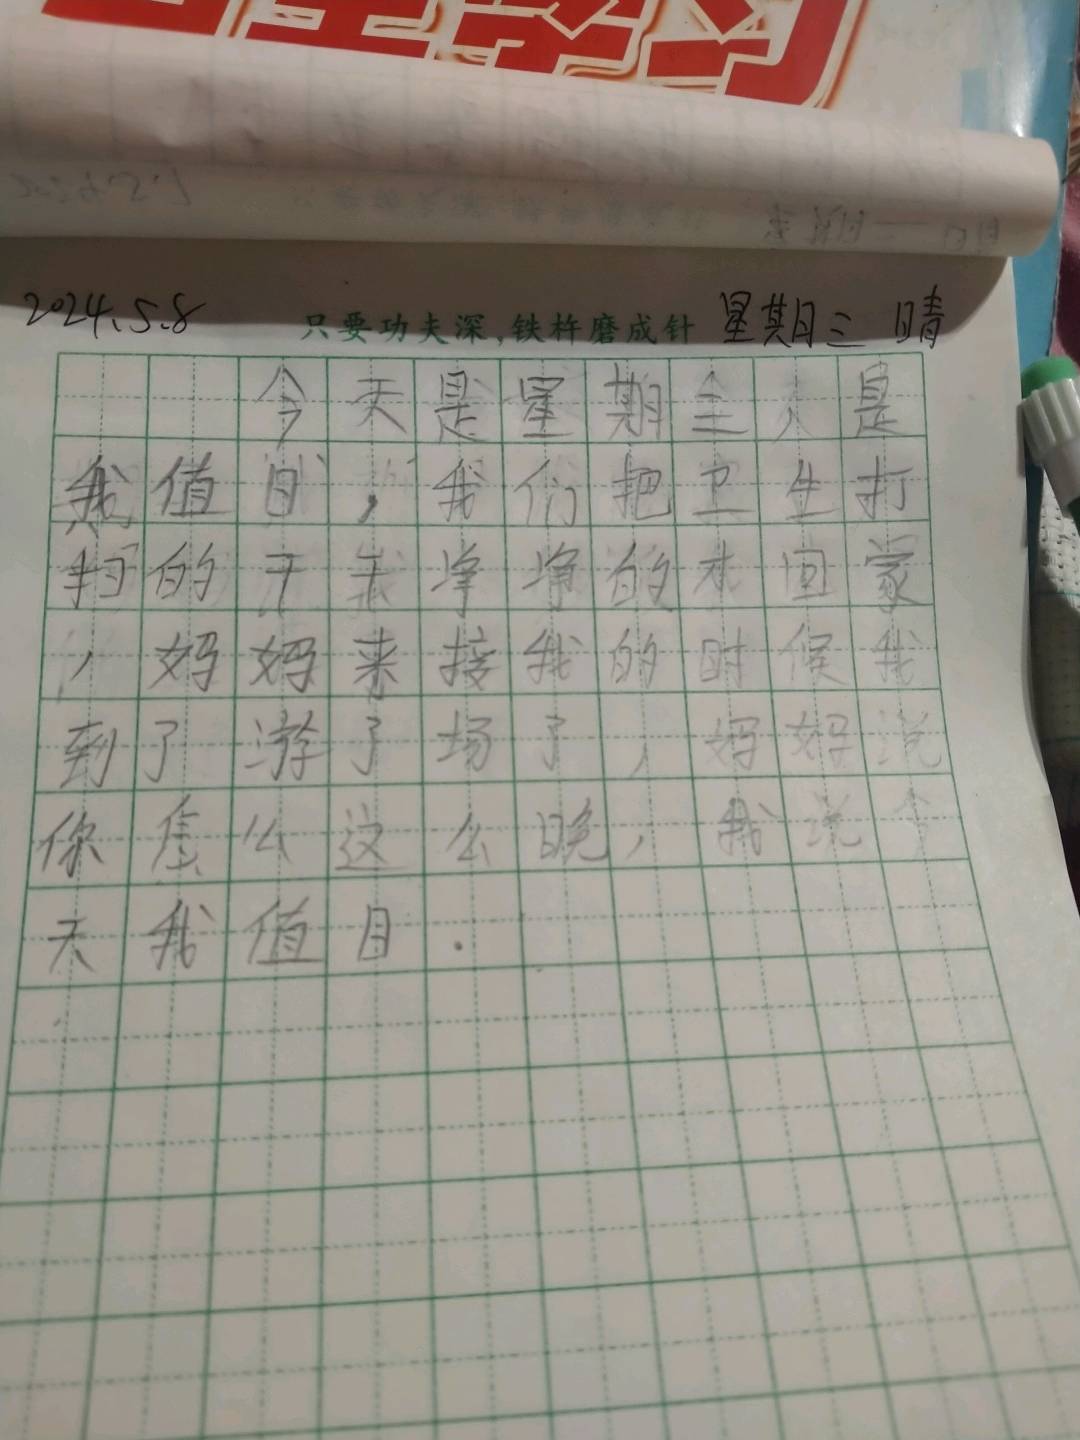 2024.5.8 只要功夫深,铁杵磨成针 星期三 晴
今天是星期三 是
我值日,我们把卫生打
扫的干 净净的才回家
,妈妈来接我的时候我
到了游了场了,妈妈说
你怎么这么晚,我说今
天我值日.